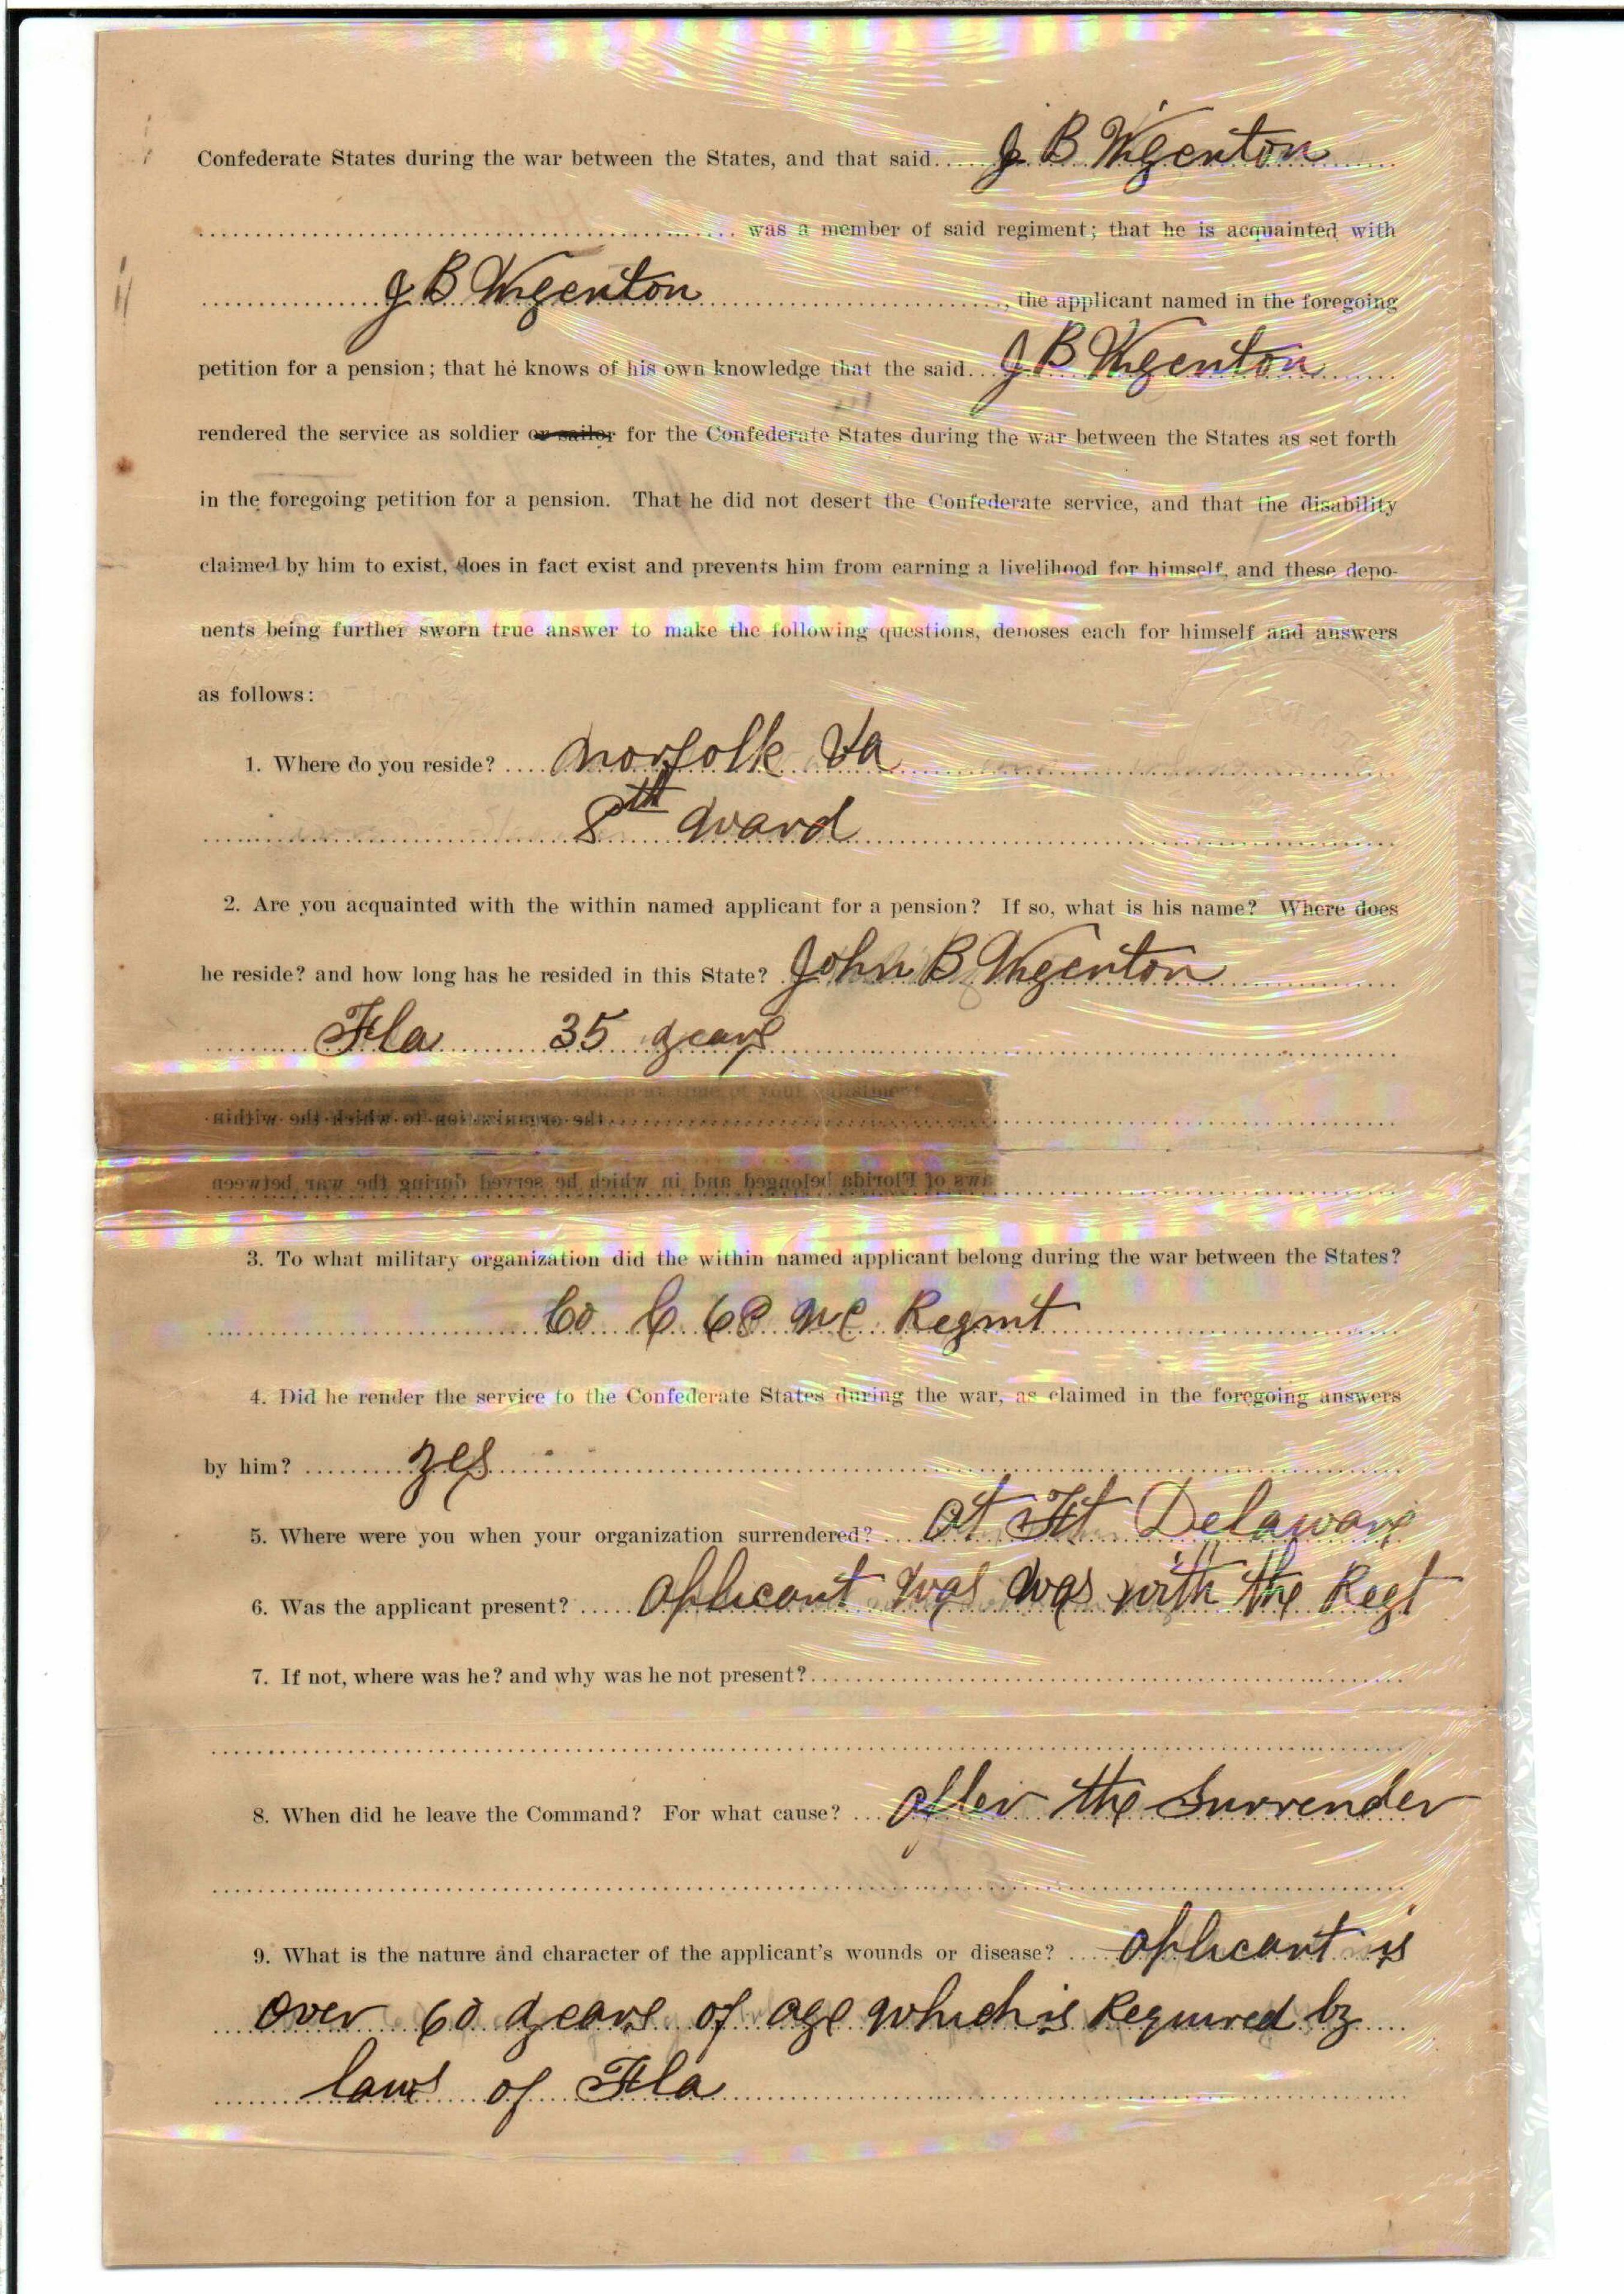 Confederate States during the war between the States, and that said J B Wigenton
was a member of said regiment; that he is acquainted with
J B Wigenton, the applicant named in the foregoing
petition for a pension; that he knows of his own knowledge that the said J B Wigenton
rendered the service as soldier or sailor for the Confederate States during the war between the States as set forth
in the foregoing petition for a pension. That he did not desert the Confederate service, and that the disability
claimed by him to exist, does in fact exist and prevents him from earning a livelihood for himself, and these depo-
nents being further sworn true answer to make the following questions, deposes each for himself and answers
as follows:
1. Where do you reside? Norfolk Va
8th Ward
2. Are you acquainted with the within named applicant for a pension? If so, what is his name? Where does
he reside? and how long has he resided in this State? John B Wigenton
Fla 35 years
the organization to which the within
aws of Florida belonged and in which he served during the war between
3. To what military organization did the within named applicant belong during the war between the States?
Co C 68 NC Regmt
4. Did he render the service to the Confederate States during the war, as claimed in the foregoing answers
by him? yes
5. Where were you when your organization surrendered? at Ft Delaware
6. Was the applicant present? aplicant was was with the Regt
7. If not, where was he? and why was he not present?
8. When did he leave the Command? For what cause? after the surrender
9. What is the nature and character of the applicant's wounds or disease? aplicant is
over 60 years of age which is Required by
laws of Fla